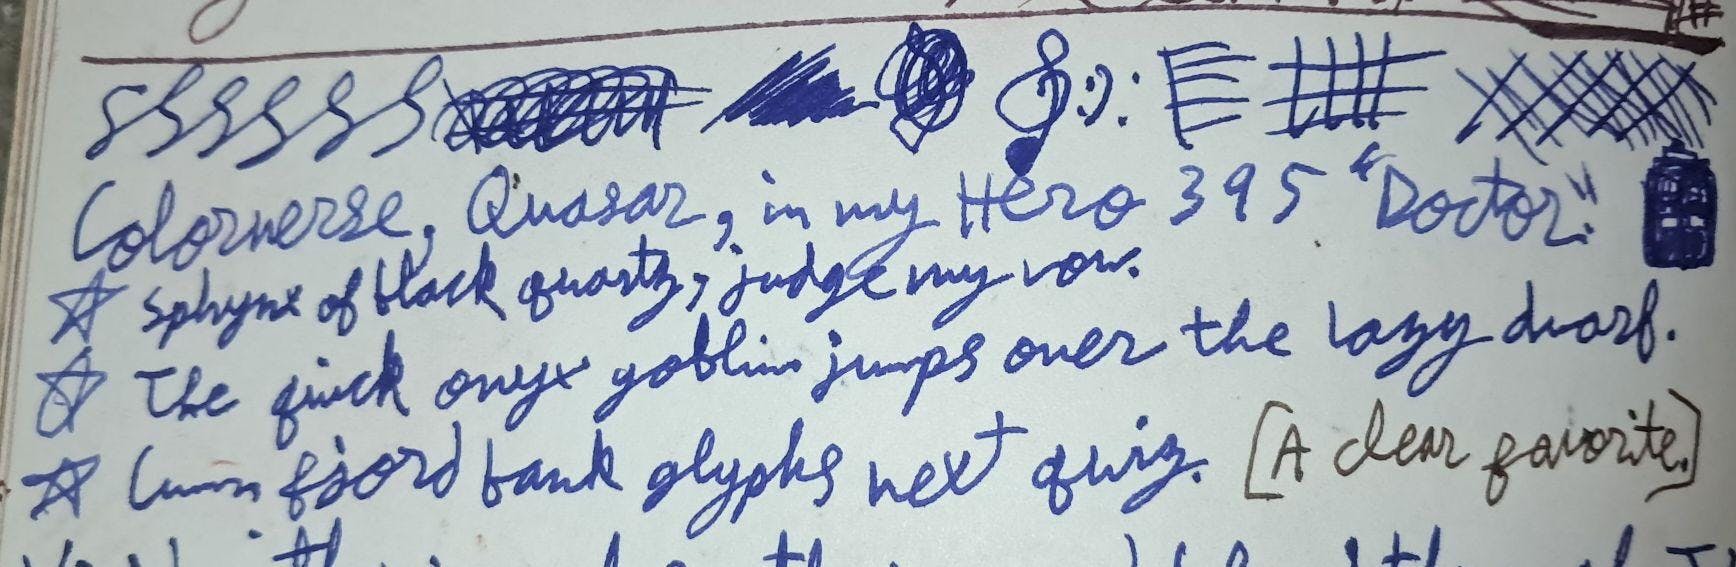 Colorverse, Quasar, in my Hero 395 "Doctor."
☆ Sphynx of black quartz, judge my vow.
☆ The quick onyx goblin jumps over the lazy dwarf.
☆ Cwm fjord bank glyphs next quiz. [A clear favorite.]